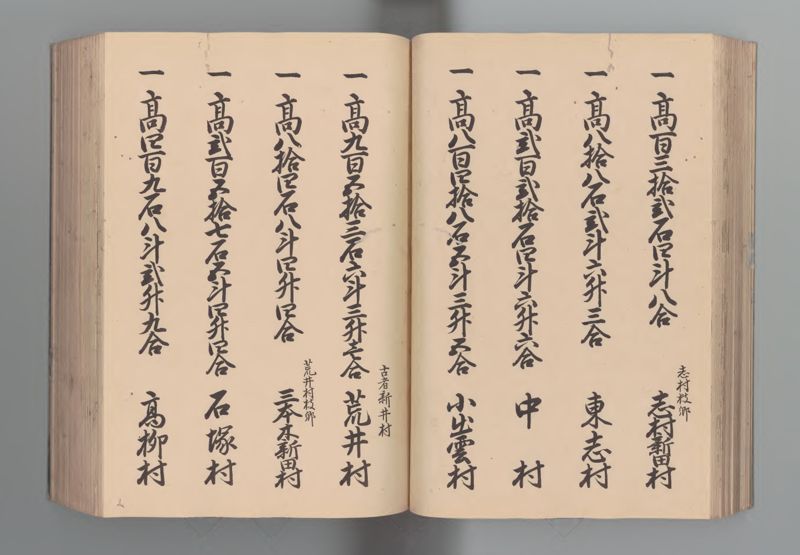 一 高百三拾弐石四斗八合
志村枝郷
志村新田村
一 高八拾八石弐斗六升三合
東志村
一 高弐百弐拾石四斗六升六合
中村
一 高八百四拾八石五斗三升五合
小出雲村
一 高九百五拾三石六斗三升壱合
古者新井村
荒井村
一 高八拾四石八斗四升四合
荒井村枝郷
三本木新田村
一 高弐百五拾七石五斗四升四合
石塚村
一 高四百九石八斗弐升九合
高柳村